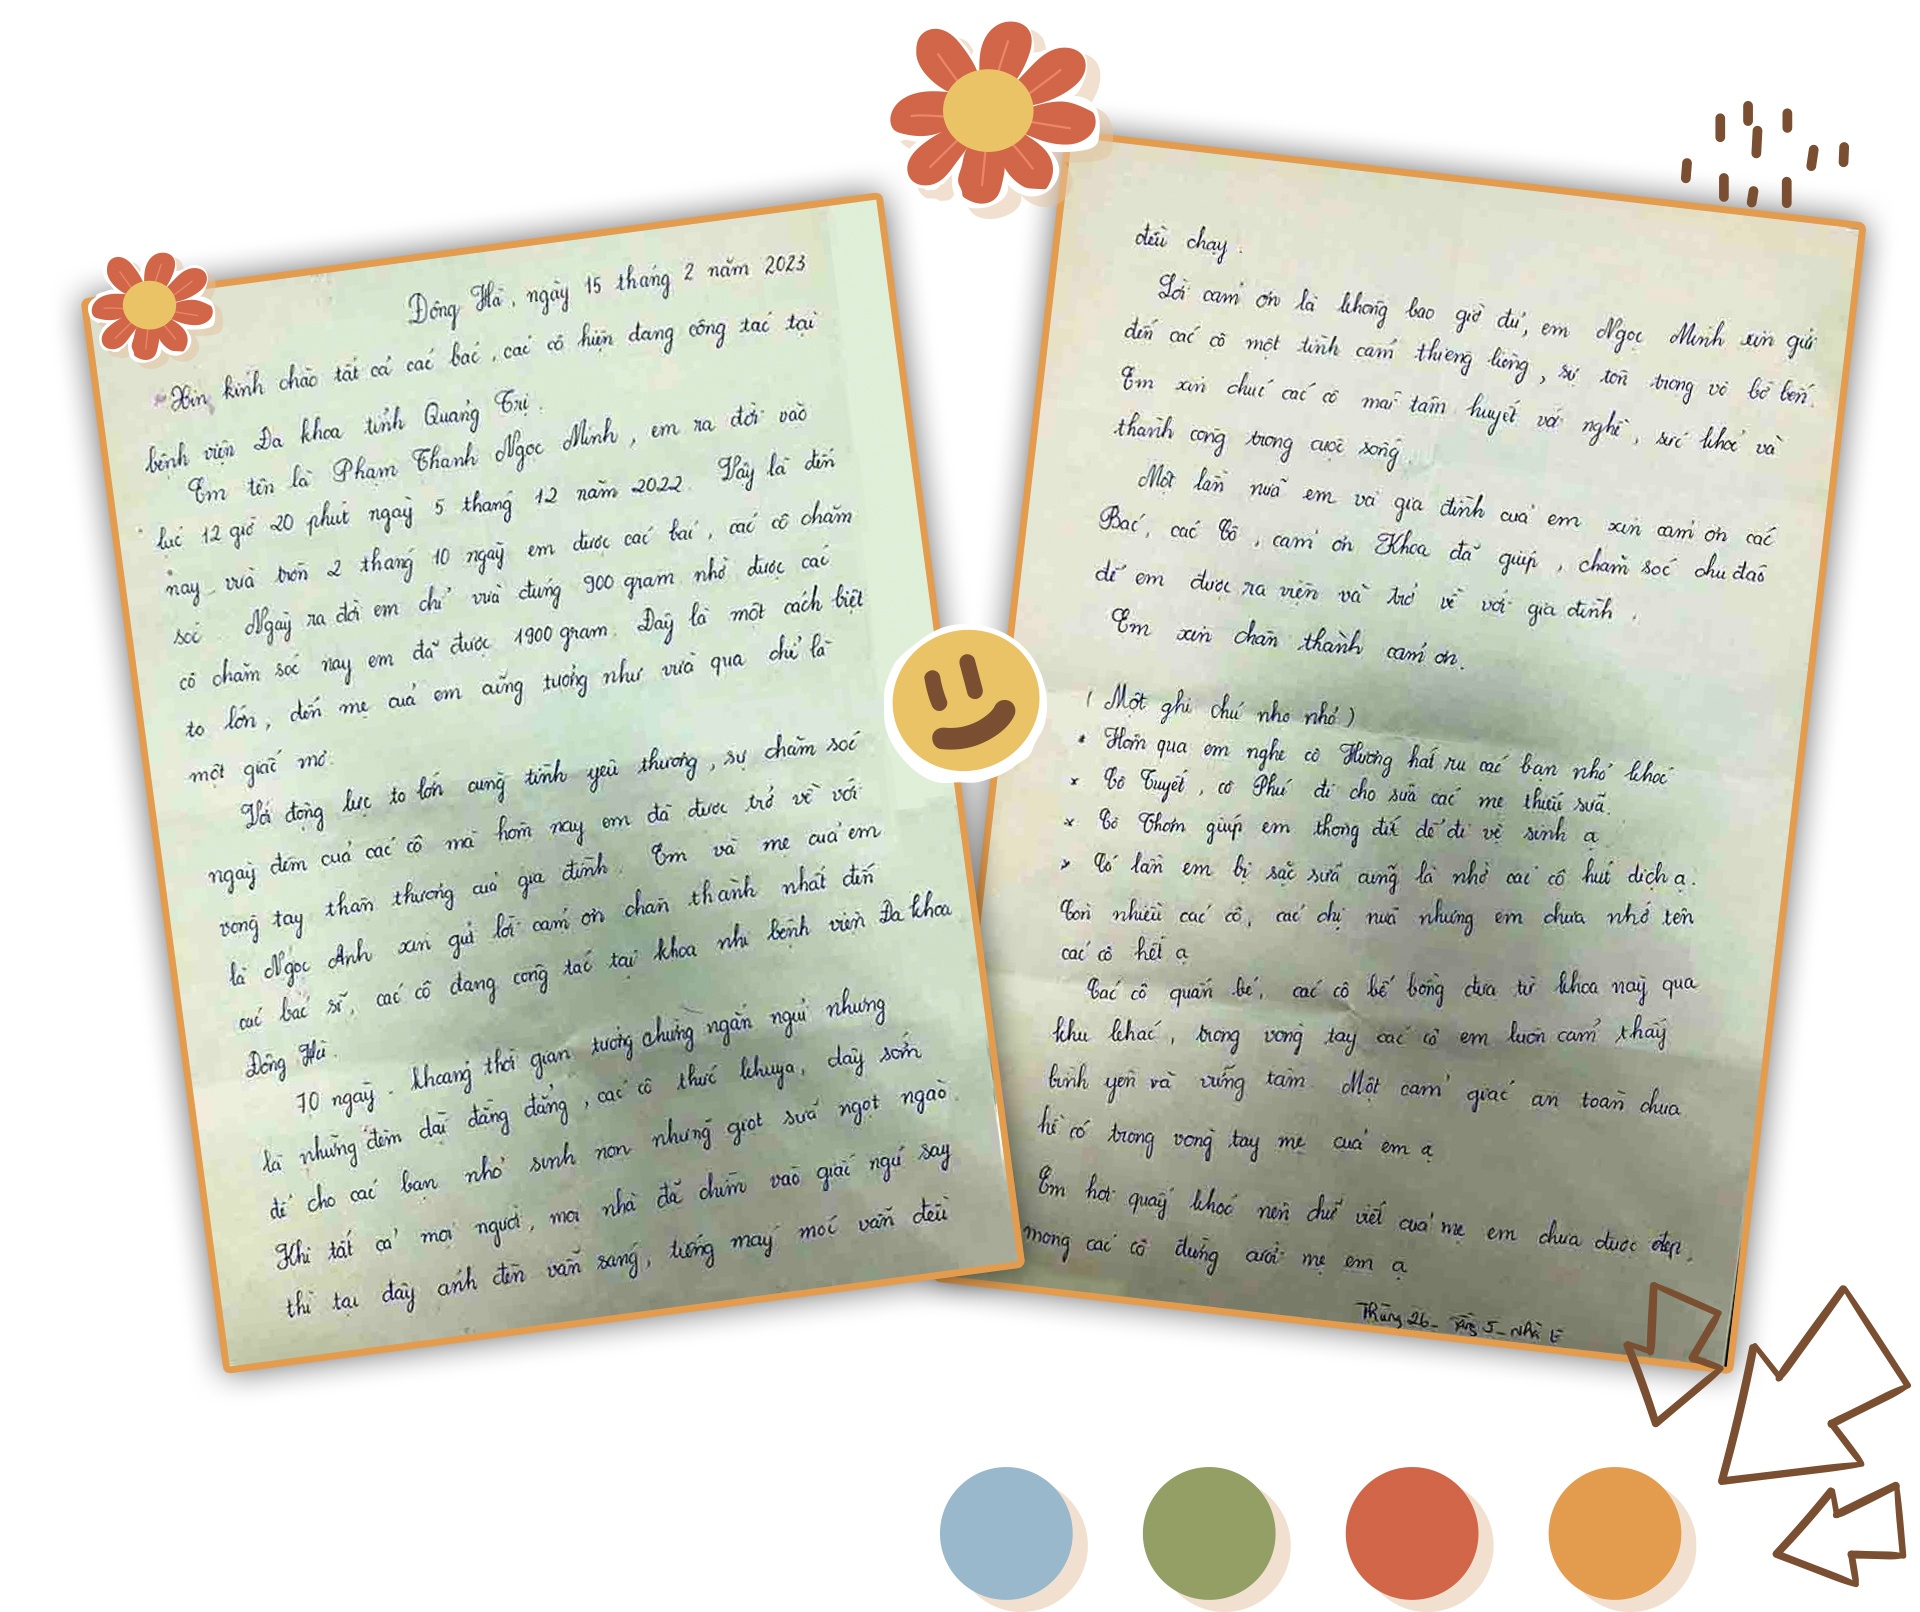 Đông Hà, ngày 15 tháng 2 năm 2023
Xin kính chào tất cả các bác, các cô hiện đang công tác tại
bệnh viện Đa khoa tỉnh Quảng Trị.
Em tên là Phạm Thanh Ngọc Minh, em ra đời vào
lúc 12 giờ 20 phút ngày 5 tháng 12 năm 2022. Vậy là đến
nay vừa tròn 2 tháng 10 ngày em được các bác, các cô chăm
sóc. Ngày ra đời em chỉ vừa đúng 900 gram nhờ được các
cô chăm sóc nay em đã được 1900 gram. Đây là một cách biệt
to lớn, đến mẹ của em cũng tưởng như vừa qua chỉ là
một giấc mơ.
Với động lực to lớn cùng tình yêu thương, sự chăm sóc
ngày đêm của các cô mà hôm nay em đã được trở về với
vòng tay thân thương của gia đình. Em và mẹ của em
là Ngọc Anh xin gửi lời cảm ơn chân thành nhất đến
các bác sĩ, các cô đang công tác tại khoa nhi bệnh viện Đa khoa
Đông Hà.
70 ngày - khoảng thời gian tưởng chừng ngắn ngủi nhưng
là những đêm dài đằng đẳng, các cô thức khuya, dậy sớm
để cho các bạn nhỏ sinh non những giọt sữa ngọt ngào.
Khi tất cả mọi người, mọi nhà đã chìm vào giấc ngủ say
thì tại đây ánh đèn vẫn sáng, tiếng máy móc vẫn đều
đều chạy.
Lời cảm ơn là không bao giờ đủ, em Ngọc Minh xin gửi
đến các cô một tình cảm thiêng liêng, sự tôn trọng vô bờ bến.
Em xin chúc các cô mãi tâm huyết với nghề, sức khoẻ và
thành công trong cuộc sống.
Một lần nữa em và gia đình của em xin cảm ơn các
Bác, các Cô, cảm ơn Khoa đã giúp, chăm sóc chu đáo
để em được ra viện và trở về với gia đình.
Em xin chân thành cảm ơn.
( Một ghi chú nho nhỏ )
* Hôm qua em nghe cô Hương hát ru các bạn nhỏ khóc
* Cô Tuyết, cô Phú đi cho sữa các mẹ thiếu sữa.
* Cô Thơm giúp em thông đít để đi vệ sinh ạ
* Có lần em bị sặc sữa cũng là nhờ các cô hút dịch ạ.
Còn nhiều các cô, các chị nữa nhưng em chưa nhớ tên
các cô hết ạ
Các cô quấn bé, các cô bế bồng đưa từ khoa này qua
khu khác, trong vòng tay các cô em luôn cảm thấy
bình yên và vững tâm. Một cảm giác an toàn chưa
hề có trong vòng tay mẹ của em ạ
Em hơi quấy khóc nên chữ viết của mẹ em chưa được đẹp,
mong các cô đừng cười mẹ em ạ
Thùng 26 - Tầng 5 - Nhà E